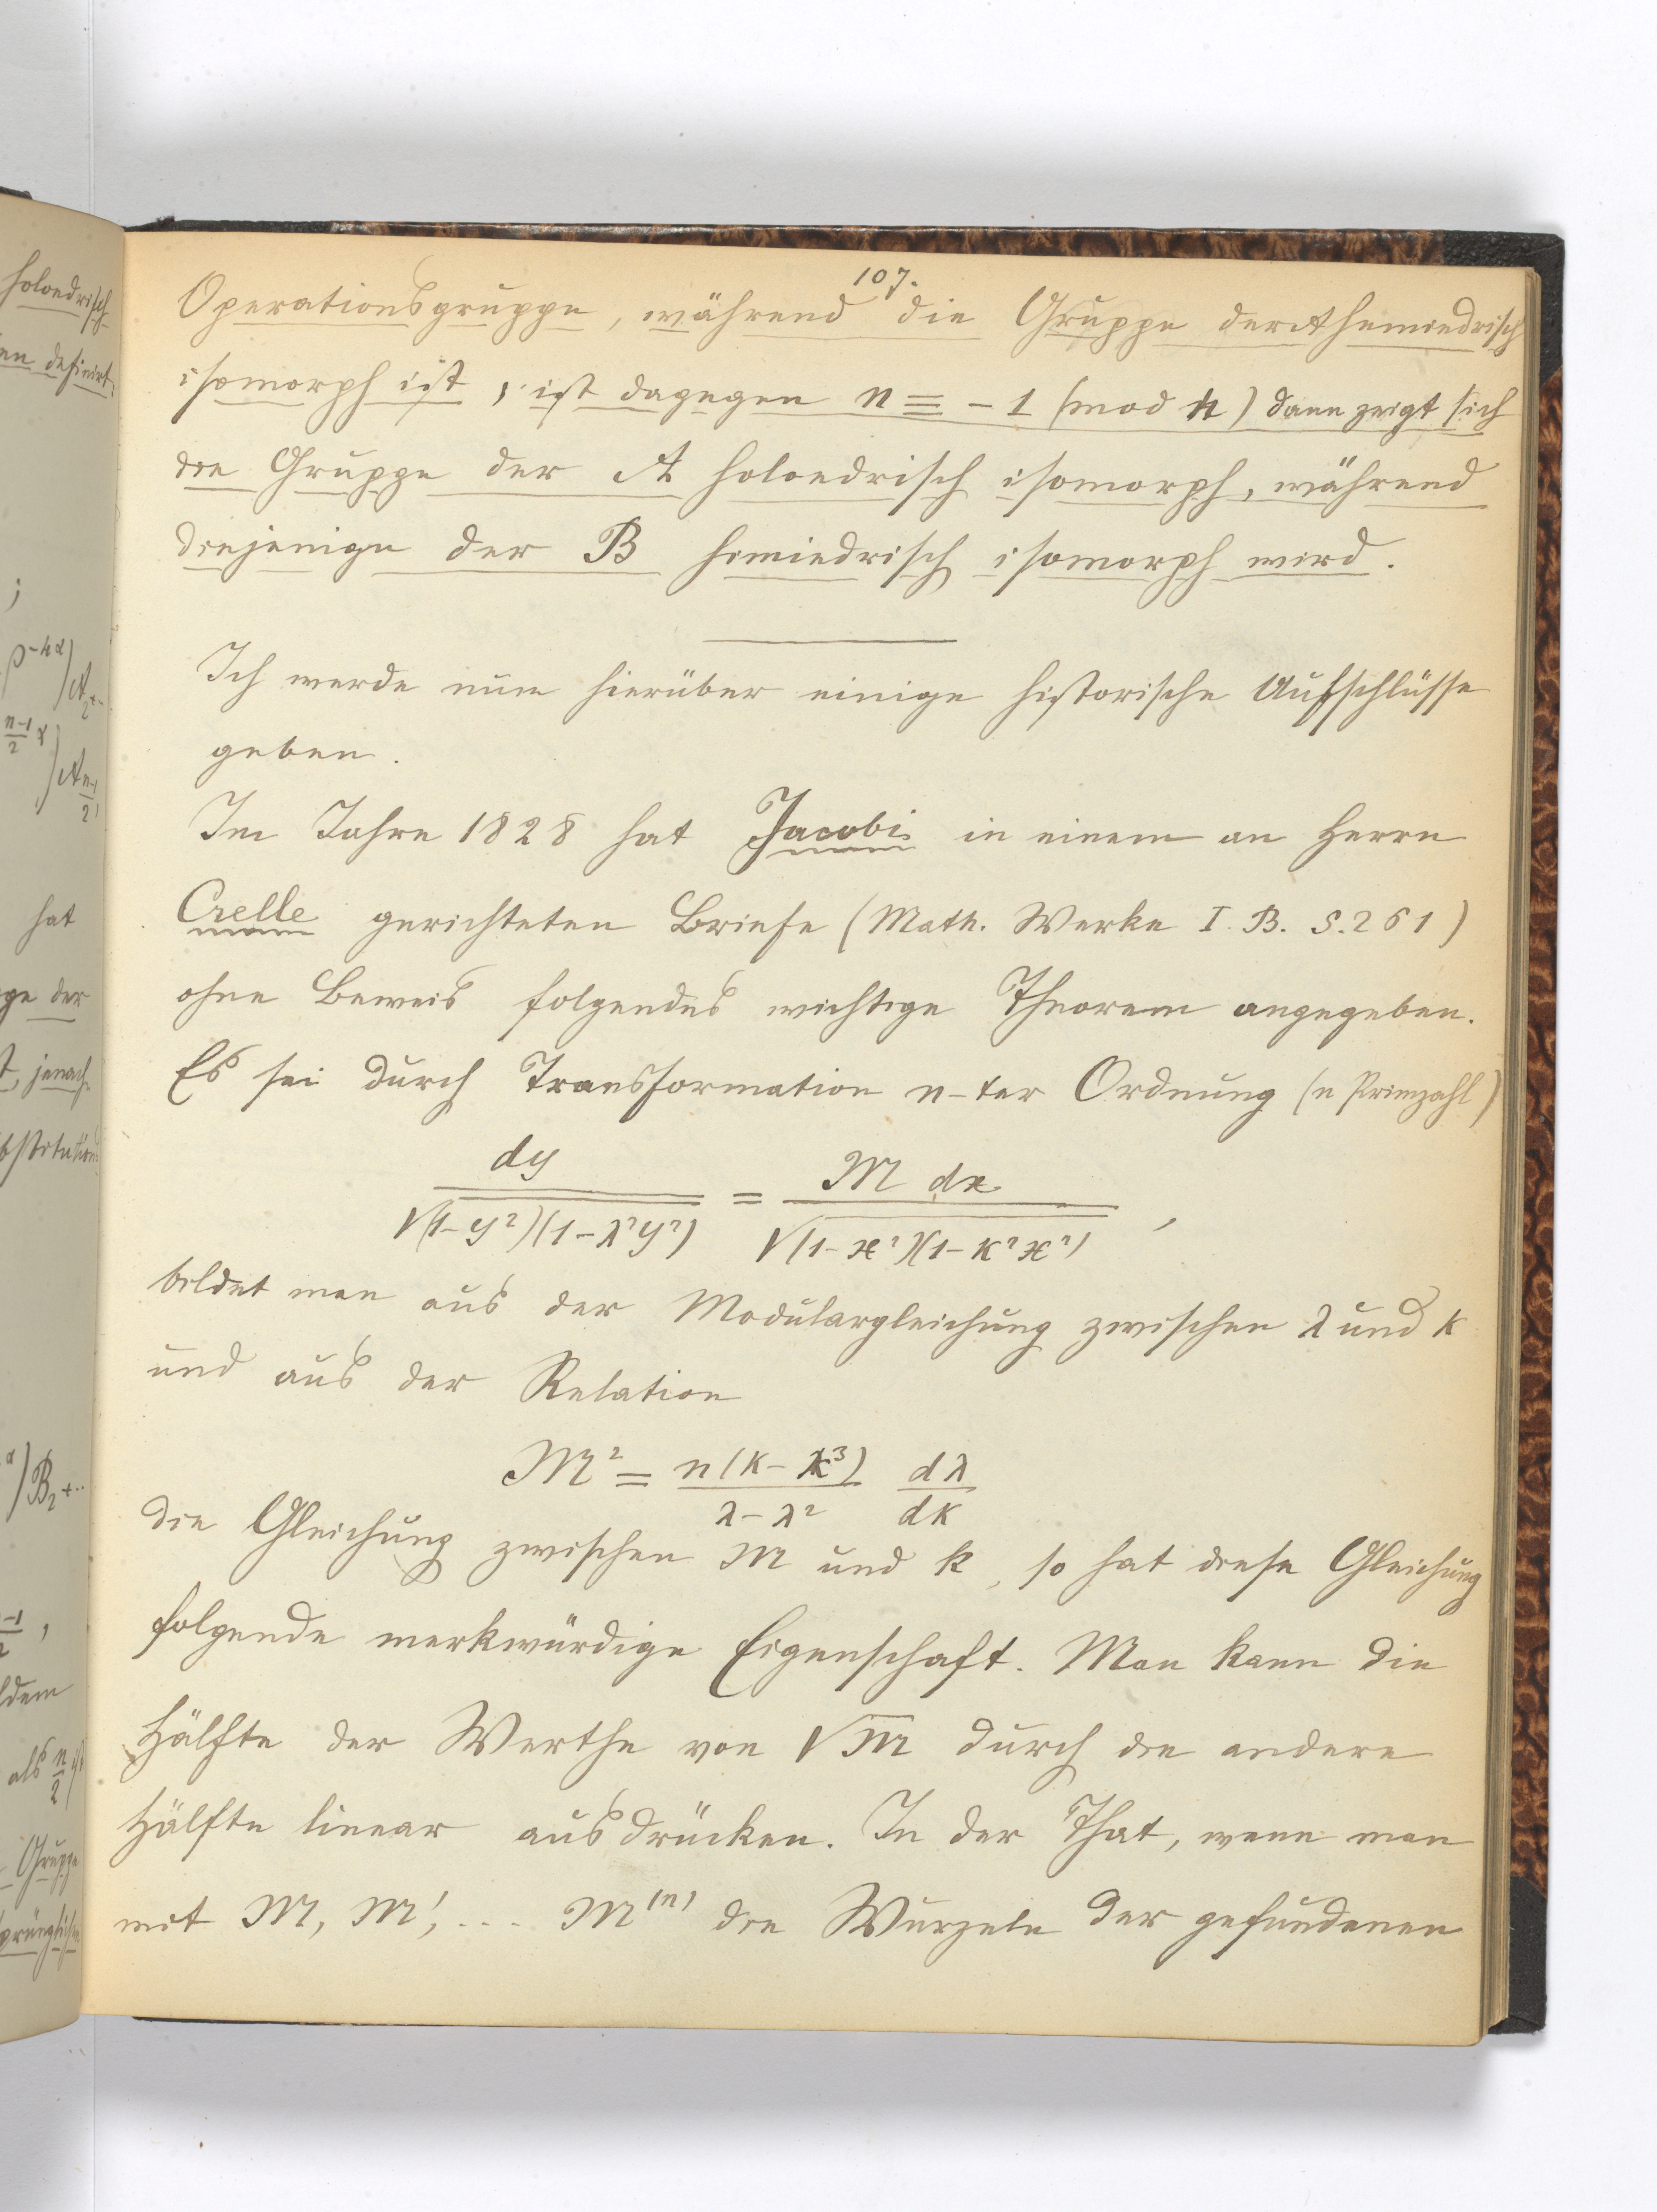 107.
Operationsgruppe, während die Gruppe der A hemiedrisch
isomorph ist, ist dagegen n ≡ -1 (mod 4) dann zeigt sich
die Gruppe der A holoedrisch isomorph, während
diejenige der B hemiedrisch isomorph wird.
Ich werde nun hierüber einige historische Aufschlüsse
geben.
Im Jahre 1828 hat Jacobi in einem an Herrn
Crelle gerichteten Briefe (Math. Werke I. B. S. 261)
ohne Beweis folgendes wichtige Theorem angegeben.
Es sei durch Transformation n-ter Ordnung (n Primzahl)
dy / √(1-y²)(1-λ²y²) = M dx / √(1-x²)(1-κ²x²) ,
bildet man aus der Modulargleichung zwischen λ und k
und aus der Relation
M² = n(k-k³) / λ-λ² dλ / dk
die Gleichung zwischen M und k, so hat diese Gleichung
folgende merkwürdige Eigenschaft. Man kann die
Hälfte der Werthe von √M durch die andere
Hälfte linear ausdrücken. In der That, wenn man
mit M, M', ... M⁽ⁿ⁾ die Wurzeln der gefundenen
holoedrisch
en definirt.
;
hat
ge der
t, jenach
als n/2 ist
Gruppe